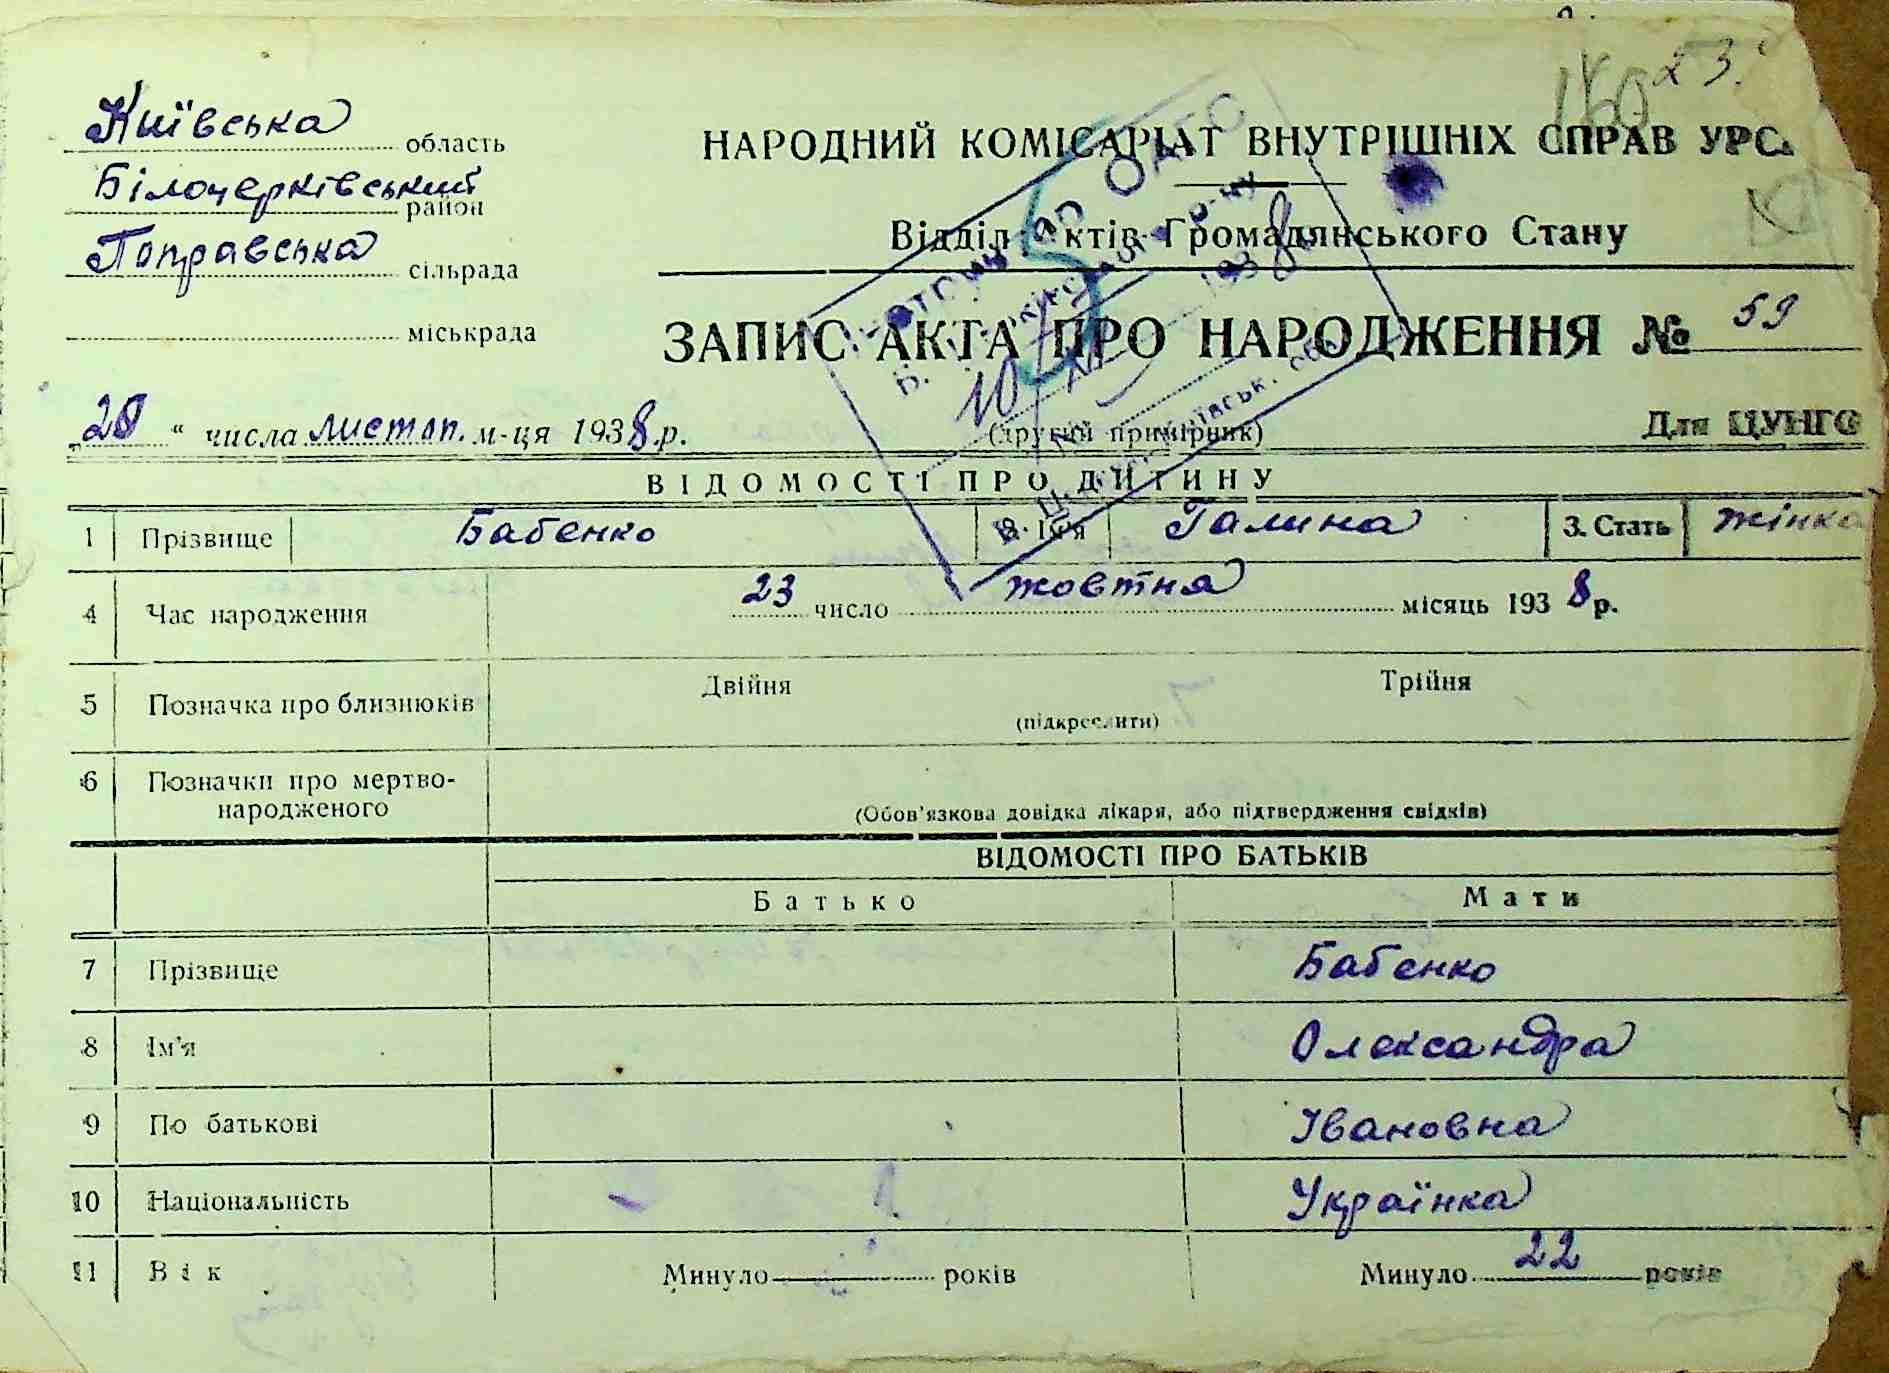 160 23.
Київська область
Білоцерківський район
Поправська сільрада
міськрада
НАРОДНИЙ КОМІСАРІАТ ВНУТРІШНІХ СПРАВ УРС
Відділ Актів Громадянського Стану
ЗАПИС АКТА ПРО НАРОДЖЕННЯ № 59
„28“ числа листоп. м-ця 1938 р.
(другий примірник)
Для ЦУНГО
ВІДОМОСТІ ПРО ДИТИНУ
1 Прізвище Бабенко 2. Ім'я Галина 3. Стать жінка
4 Час народження 23 число жовтня місяць 1938 р.
5 Позначка про близнюків Двійня Трійня
(підкреслити)
6 Позначки про мертво-
народженого
(Обов'язкова довідка лікаря, або підтвердження свідків)
ВІДОМОСТІ ПРО БАТЬКІВ
Батько Мати
7 Прізвище Бабенко
8 Ім'я Олександра
9 По батькові Івановна
10 Національність Українка
11 Вік Минуло років Минуло 22 років